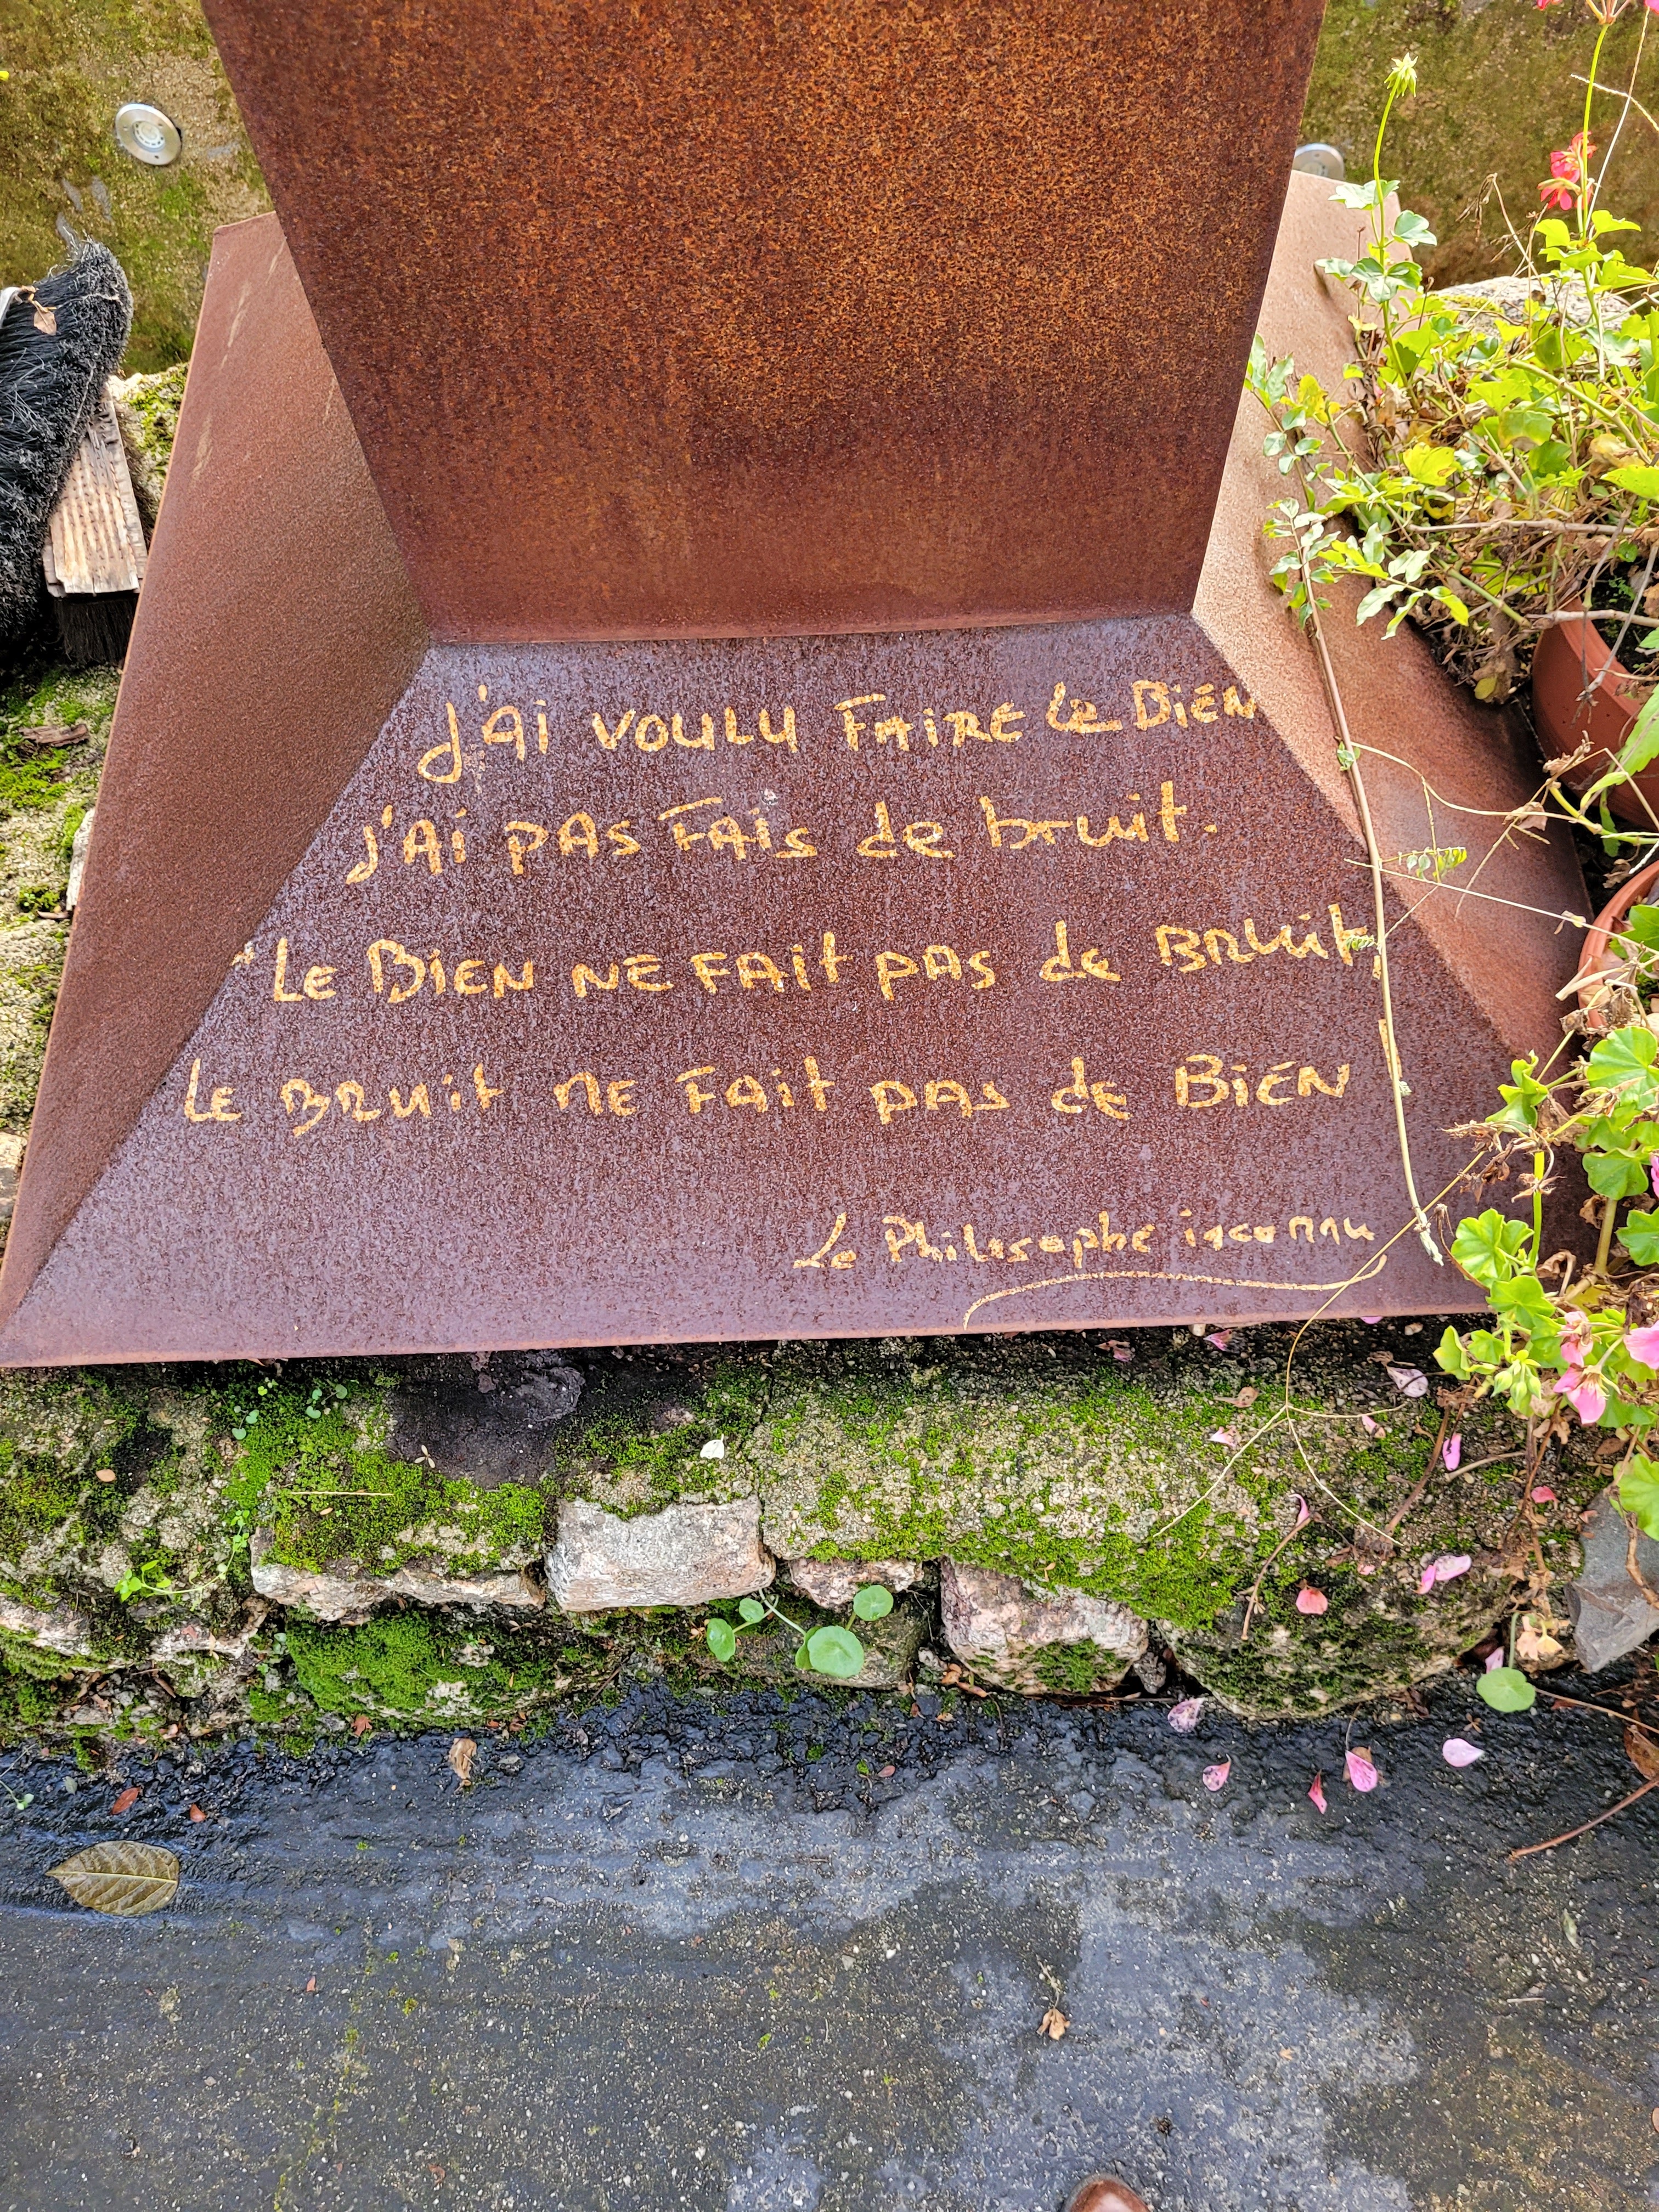 J'Ai VOULU FAIRE Le BiEN
J'Ai PAS FAis de bruit.
"LE BiEN NE FAit PAS de BRuit,
LE BRUit NE FAit PAS dE BiEN"
Le Philosophe inconnu